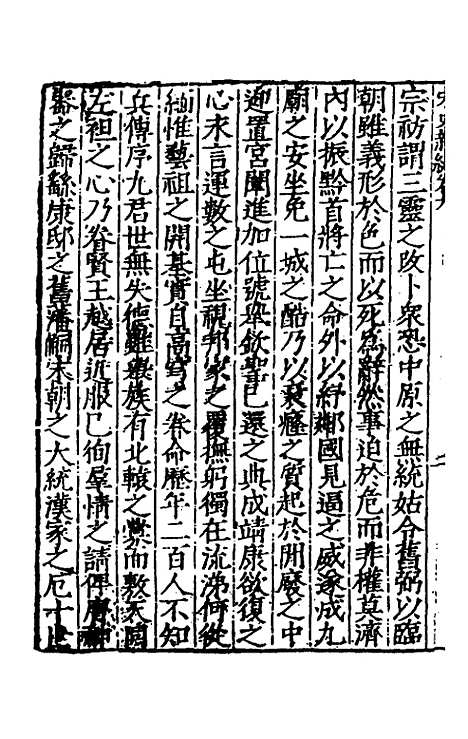 宗祊謂三靈之改卜衆恐中原之無統姑令舊弼以臨
朝雖義形於色而以死為辭然事迫於危而非權莫濟
內以振黔首將亡之命外以紓鄰國見逼之威遂成九
廟之安坐免一城之酷乃以衰癃之質起於閒廢之中
迎置宮闈進加位號舉欽聖已還之典成靖康欲復之
心永言運數之屯坐視邦家之覆撫躬獨在流涕何從
緬惟藝祖之開基實自高穹之眷命歷年二百人不知
兵傳序九君世無失德雖舉族有北轅之釁而敷天同
左袒之心乃眷賢王越居近服已徇群情之請俾膺神
器之歸繇康邸之舊藩嗣宋朝之大統漢家之厄十世